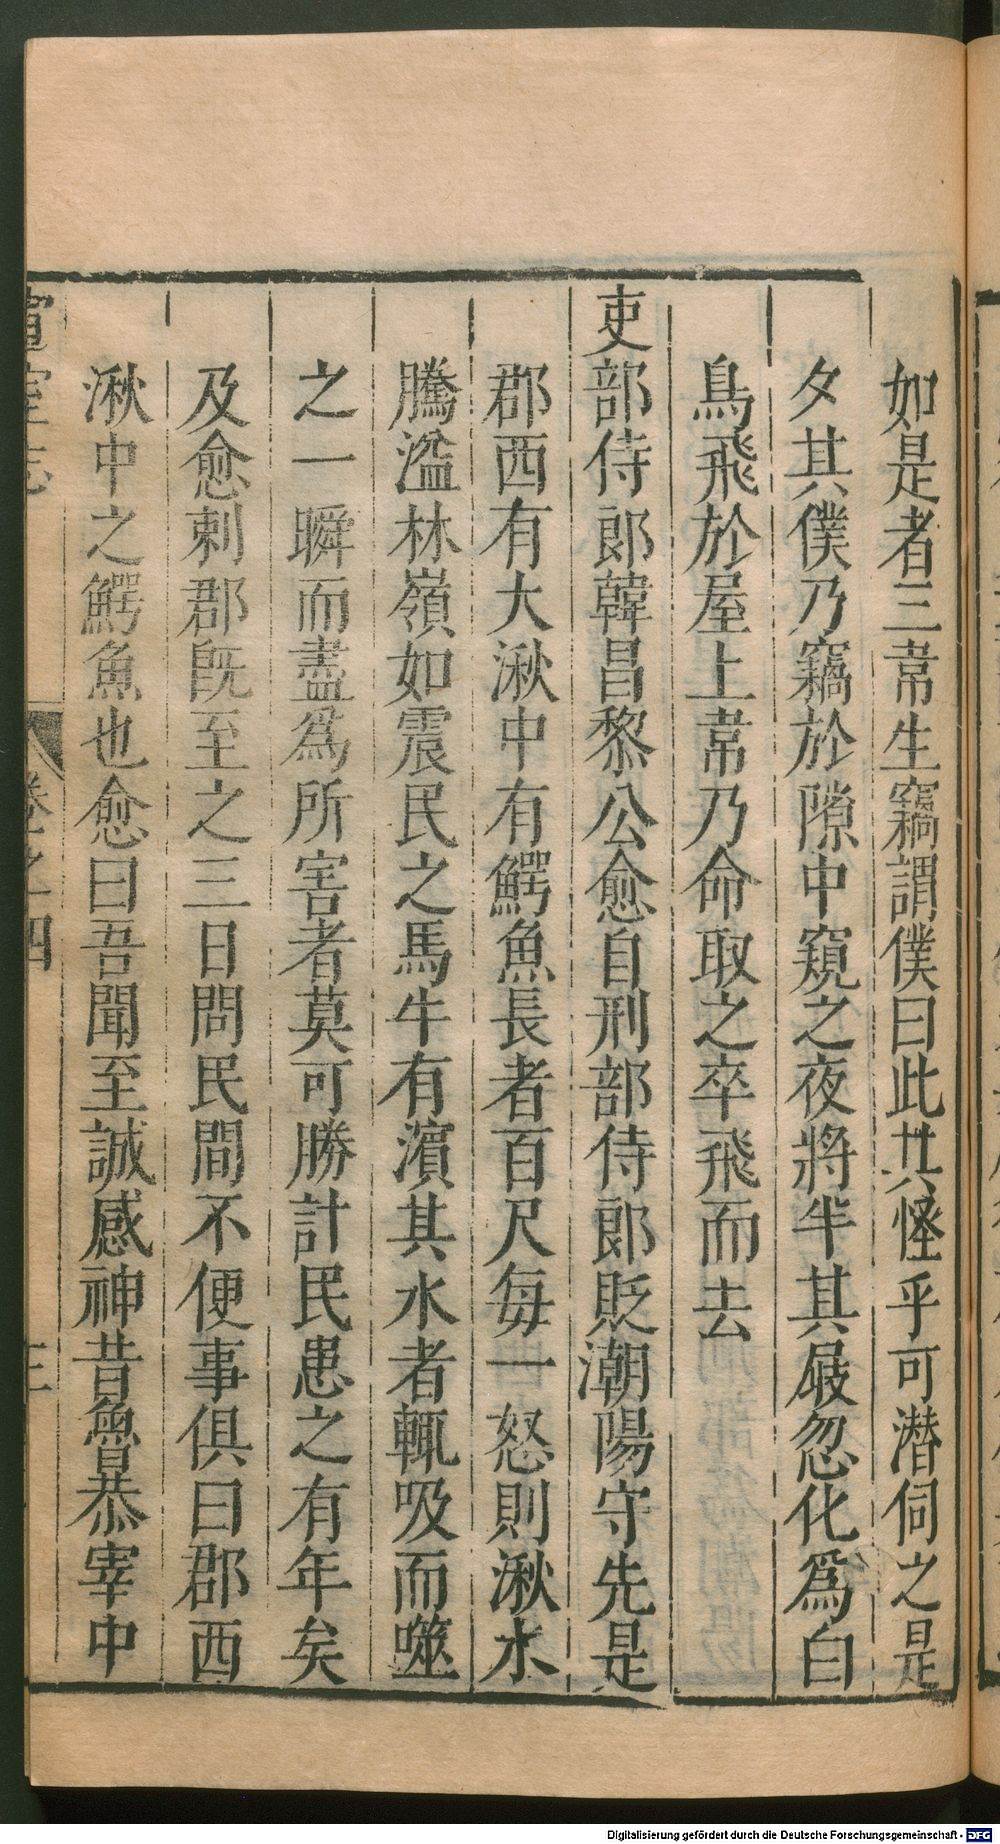 如是者三韋生竊謂僕曰此其怪乎可潜伺之是
夕其僕乃竊於隙中窺之夜將半其屐忽化爲白
鳥飛於屋上韋乃命取之卒飛而去
吏部侍郎韓昌黎公愈自刑部侍郎貶潮陽守先是
郡西有大湫中有鰐魚長者百尺每一怒則湫水
騰溢林嶺如震民之馬牛有濱其水者輒吸而噬
之一瞬而盡爲所害者莫可勝計民患之有年矣
及愈刺郡既至之三日問民間不便事俱曰郡西
湫中之鰐魚也愈曰吾聞至誠感神昔魯恭宰中
宣室志 卷之四 三
Digitalisierung gefördert durch die Deutsche Forschungsgemeinschaft - DFG